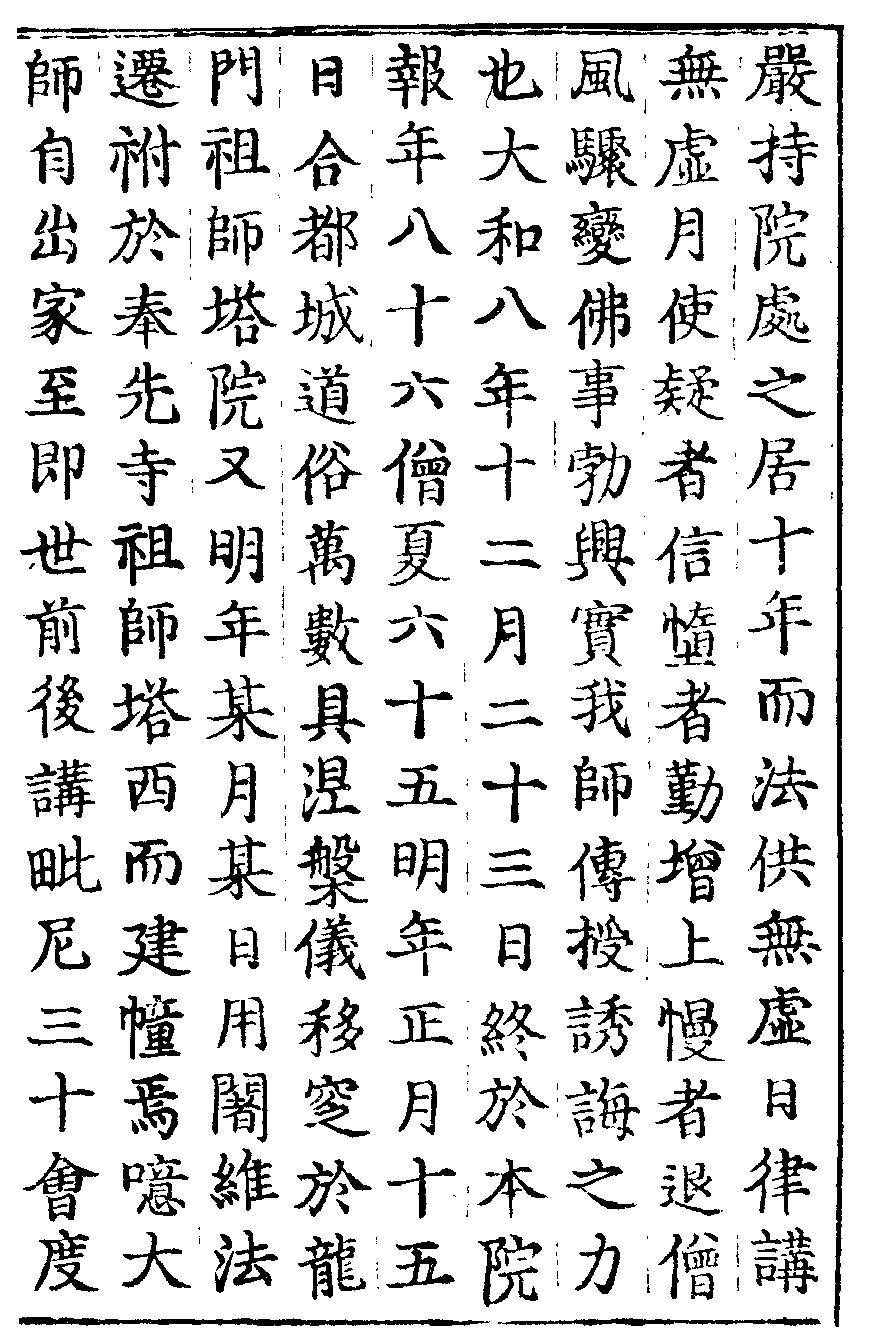 嚴持院處之居十年而法供無虛日律講
無虛月使疑者信墮者勤增上慢者退僧
風驟變佛事勃興實我師傳授誘誨之力
也大和八年十二月二十三日終於本院
報年八十六僧夏六十五明年正月十五
日合都城道俗萬數具涅槃儀移窆於龍
門祖師塔院又明年某月某日用闍維法
遷祔於奉先寺祖師塔西而建幢焉噫大
師自出家至即世前後講毗尼三十會度